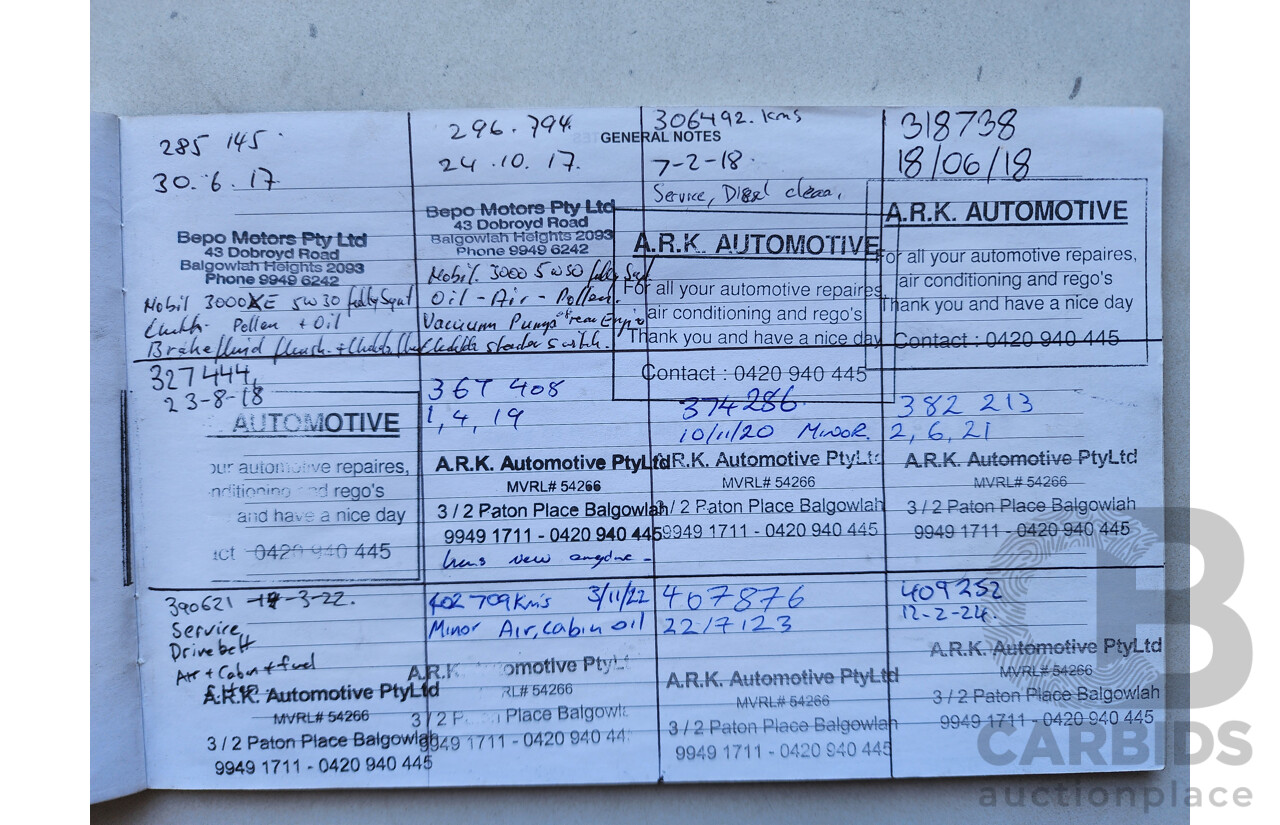 GENERAL NOTES
285 145.
30.6.17.
Bepo Motors Pty Ltd
43 Dobroyd Road
Balgowlah Heights 2093
Phone 9949 6242
Mobil 3000XE 5W30
Pollen + Oil
Brake fluid
296.794.
24.10.17.
Bepo Motors Pty Ltd
43 Dobroyd Road
Balgowlah Heights 2093
Phone 9949 6242
Mobil. 3000 5W50
Oil - Air - Pollen.
Vacuum Pump
306492.kms
7-2-18.
Service, Diesel clean,
A.R.K. AUTOMOTIVE
For all your automotive repaires,
air conditioning and rego's
Thank you and have a nice day
Contact : 0420 940 445
318738
18/06/18
A.R.K. AUTOMOTIVE
For all your automotive repaires,
air conditioning and rego's
Thank you and have a nice day
Contact : 0420 940 445
327444,
23-8-18
AUTOMOTIVE
our automotive repaires,
nditioning and rego's
and have a nice day
0420 940 445
367 408
1,4,19
A.R.K. Automotive PtyLtd
MVRL# 54266
3 / 2 Paton Place Balgowlah
9949 1711 - 0420 940 445
new
374286.
10/11/20 MINOR.
R.K. Automotive PtyLtd
MVRL# 54266
3 / 2 Paton Place Balgowlah
9949 1711 - 0420 940 445
382 213
2,6,21
A.R.K. Automotive PtyLtd
MVRL# 54266
3 / 2 Paton Place Balgowlah
9949 1711 - 0420 940 445
390621 -3-22.
Service
Drivebelt
Air + Cabin + fuel
A.R.K. Automotive PtyLtd
MVRL# 54266
3 / 2 Paton Place Balgowlah
9949 1711 - 0420 940 445
402709Kms 3/11/22
Minor Air, Cabin oil
A.R.K. omotive PtyLt
RL# 54266
3 / 2 P Place Balgowla
9949 1711 - 0420 940 44
407876
22/7/23
A.R.K. Automotive PtyLtd
MVRL# 54266
3 / 2 Paton Place Balgowlah
9949 1711 - 0420 940 445
409252
12-2-24.
A.R.K. Automotive PtyLtd
MVRL# 54266
3 / 2 Paton Place Balgowlah
9949 1711 - 0420 940 445
CARBIDS
auctionplace